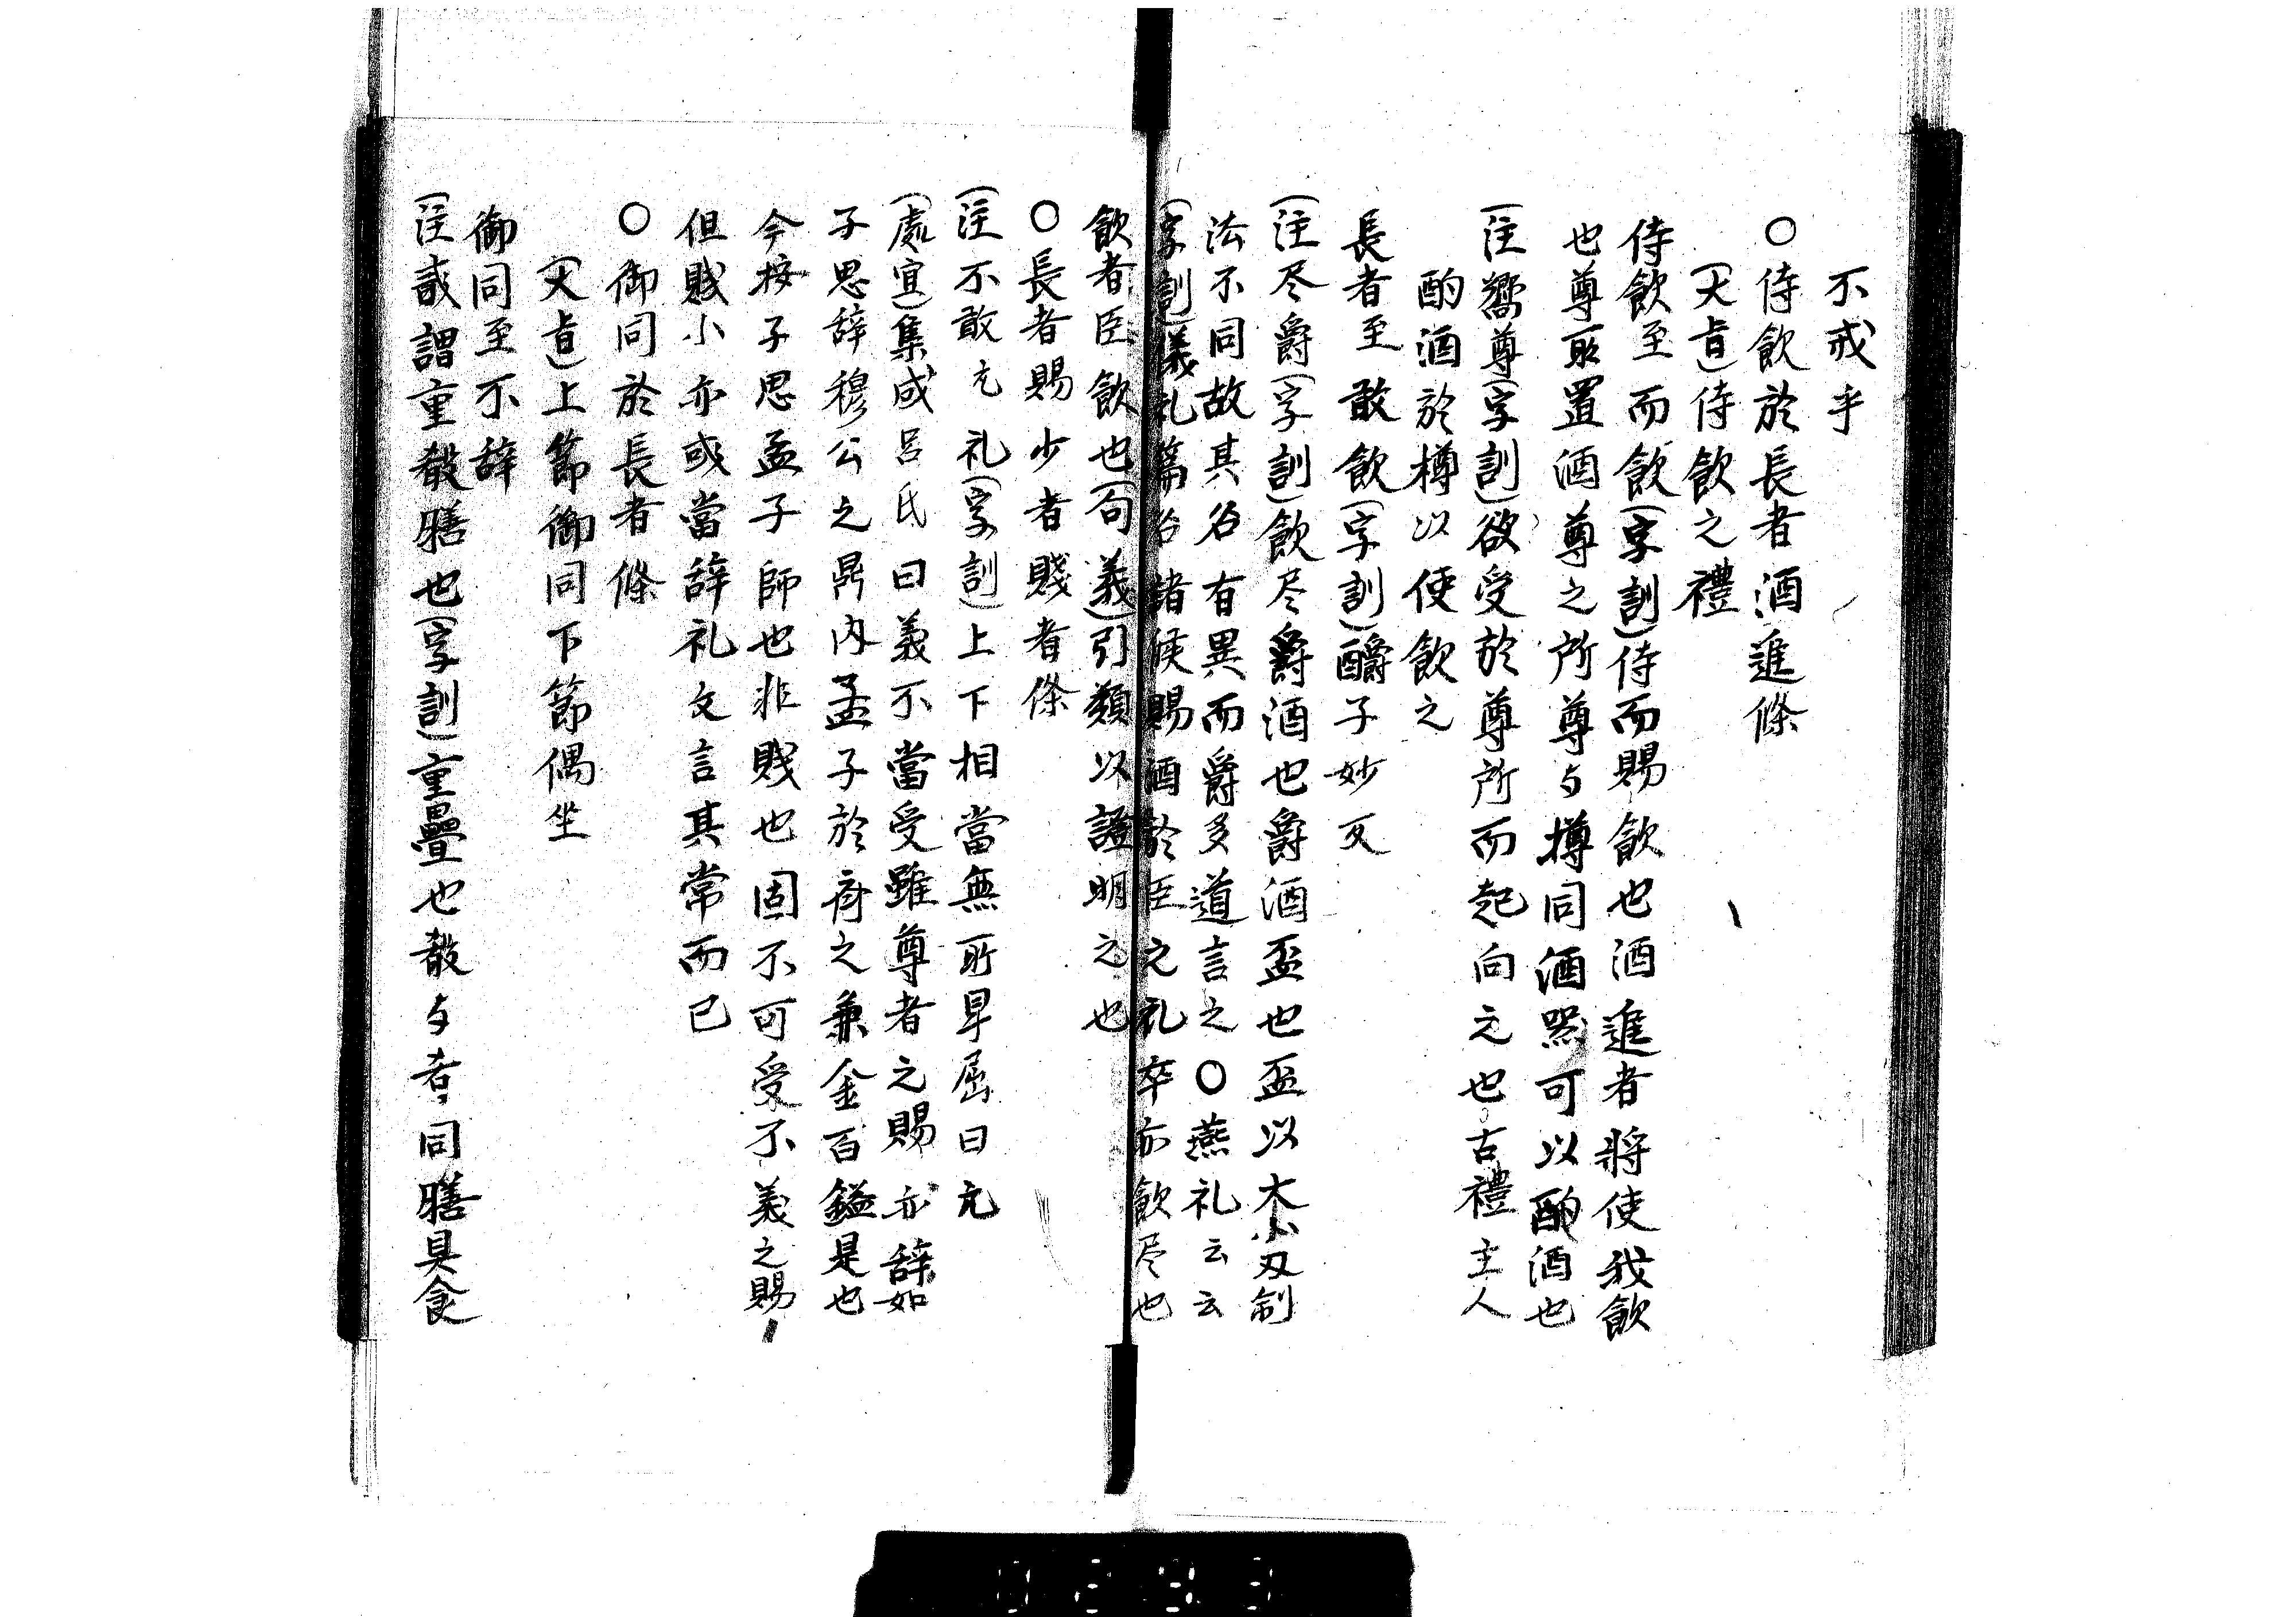 不戒乎
○侍飲於長者酒進條
(大㫖)侍飲之禮
侍飲至而飲(字訓)侍而賜飲也酒進者將使我飲
也尊所置酒尊之所尊与樽同酒器可以酌酒也
(注嚮尊(字訓)欲受於尊所而起向之也古禮主人
酌酒於樽以使飲之
長者至敢飲(字訓)釂子妙反
(注尽爵(字訓)飲尽爵酒也爵酒盃也盃以木小刄制
法不同故其名有異而爵多道言之○燕礼云云
(字訓)儀礼篇名諸侯賜酒於臣之礼卒亦飲尽也
飲者臣飲也(句義)引類以證明之也
○長者賜少者賤者條
(注不敢亢礼(字訓)上下相當無所卑屈曰亢
(處宜)集成呂氏曰義不當受雖尊者之賜亦辞如
子思辞穆公之鼎肉孟子於齊之兼金百鎰是也
今按子思孟子師也非賤也固不可受不義之賜
但賤小亦或當辞礼文言其常而已
○御同於長者條
(大㫖)上節御同下節偶坐
御同至不辞
(注貳謂重殽膳也(字訓)重疊也殽与肴同膳具食